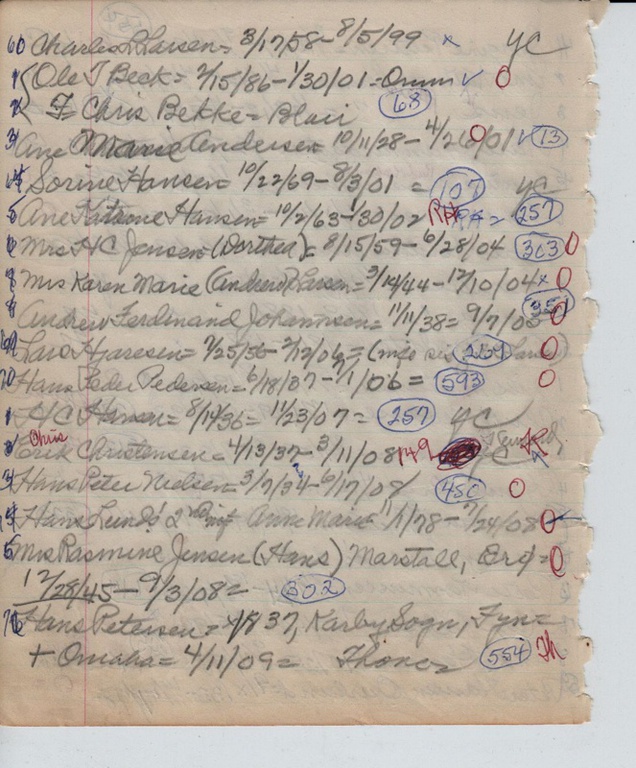 60 Charles P. Larsen = 3/17/58 - 8/5/99 x yc
1 Ole T Beck = 2/15/86 - 1/30/01 = Orum ✓ O
2 F = Chris Bekke = Blair 68
3 Ane Marie Andersen 10/11/28 - 4/26/01 ✓ 13
4 Sorine Hansen = 10/22/69 - 8/3/01 = 107 yc
5 Ane Katrine Hansen = 10/2/63 - 1/30/02 257
6 Mrs HC Jensen (Dorthea) = 8/15/59 - 6/28/04 303 O
Mrs Karen Marie (Andrew) Larsen = 3/14/44 - 12/10/04 x O
8 Andrew Ferdinand Johannsen = 11/11/38 = 9/7/05 351 O
Lars = 7/25/56 - 2/12/06 = 234 O
70 Hans Peder Pedersen = 6/18/37 - 7/1/06 = 593 O
1 HC Hansen = 8/14/36 = 11/23/07 = 257 yc
Chris
Erik Christensen = 4/13/37 - 3/11/08 149 R
3 Hans Peter Nielsen = 3/7/34 - 6/17/08 450 O
4 Hans Lunds' 2nd Anne Marie 11/1/78 - 7/24/08 O
5 Mrs Rasmine Jensen (Hans) Marstall, = O
12/28/45 - 9/3/08 = 302
76 Hans Petersen = 1837, Karby Sogn, Fyn =
+ Omaha = 4/11/09 = 554 Th